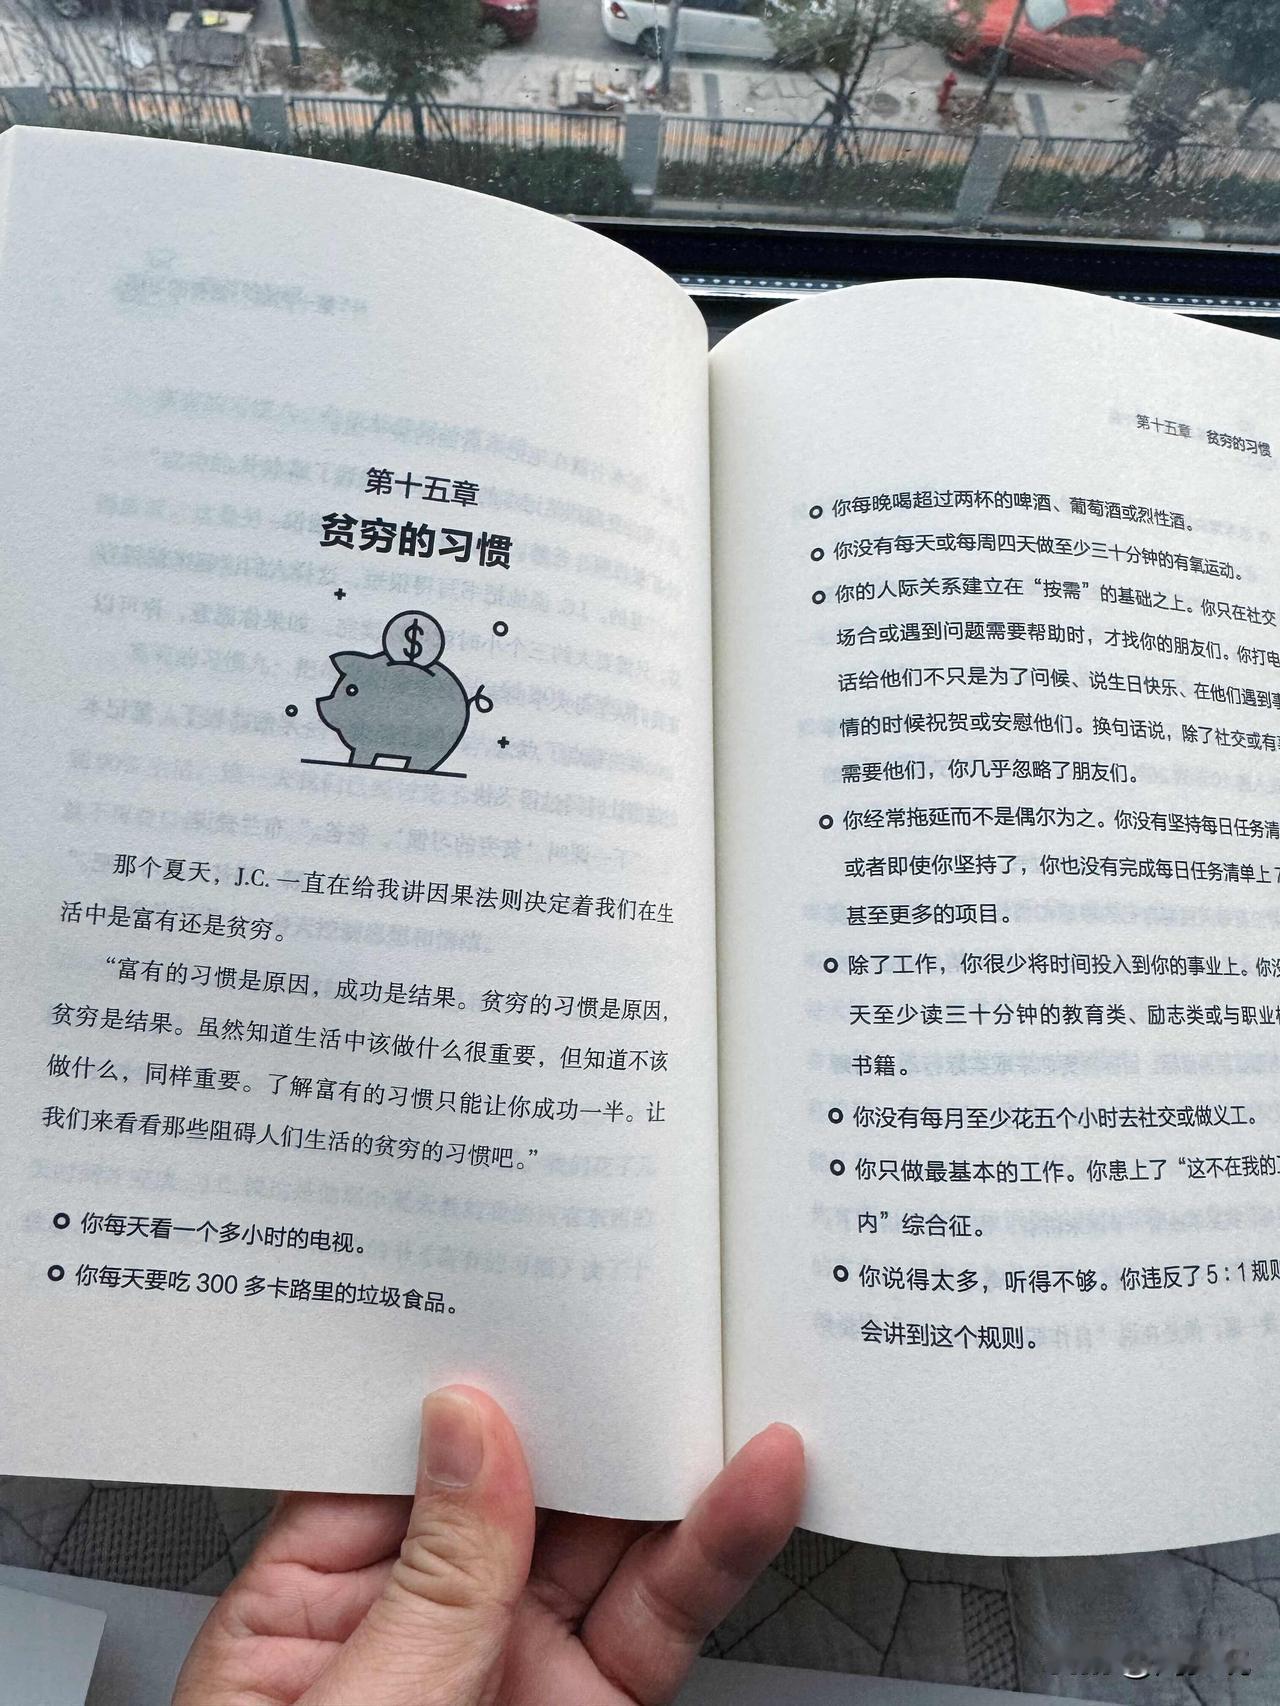 第十五章
贫穷的习惯
$
那个夏天，J.C. 一直在给我讲因果法则决定着我们在生
活中是富有还是贫穷。
“富有的习惯是原因，成功是结果。贫穷的习惯是原因，
贫穷是结果。虽然知道生活中该做什么很重要，但知道不该
做什么，同样重要。了解富有的习惯只能让你成功一半。让
我们来看看那些阻碍人们生活的贫穷的习惯吧。”
你每天看一个多小时的电视。
你每天要吃 300 多卡路里的垃圾食品。
第十五章 贫穷的习惯
你每晚喝超过两杯的啤酒、葡萄酒或烈性酒。
你没有每天或每周四天做至少三十分钟的有氧运动。
你的人际关系建立在“按需”的基础之上。你只在社交
场合或遇到问题需要帮助时，才找你的朋友们。你打电
话给他们不只是为了问候、说生日快乐、在他们遇到事
情的时候祝贺或安慰他们。换句话说，除了社交或有事
需要他们，你几乎忽略了朋友们。
你经常拖延而不是偶尔为之。你没有坚持每日任务清
或者即使你坚持了，你也没有完成每日任务清单上
甚至更多的项目。
除了工作，你很少将时间投入到你的事业上。你没
天至少读三十分钟的教育类、励志类或与职业
书籍。
你没有每月至少花五个小时去社交或做义工。
你只做最基本的工作。你患上了“这不在我的
内”综合征。
你说得太多，听得不够。你违反了 5：1 规则
会讲到这个规则。